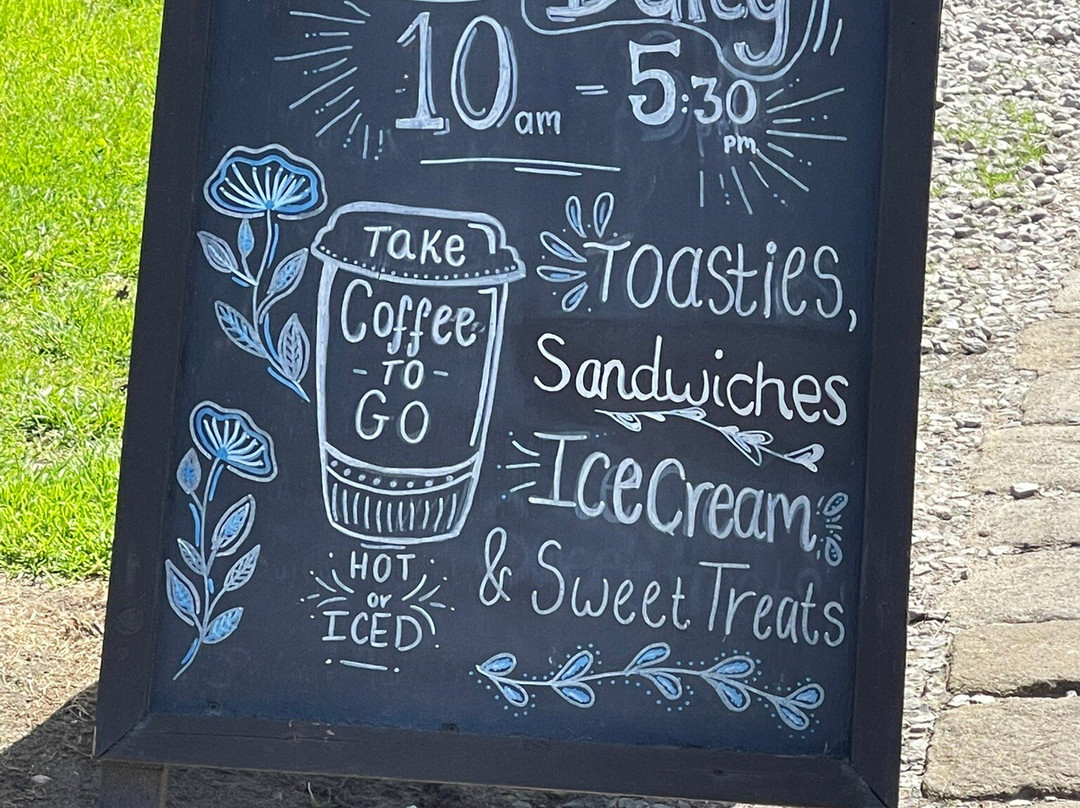 Daily
10am - 5:30pm
Take
Coffee
- TO -
GO
HOT
or
ICED
Toasties,
Sandwiches
Ice Cream
& Sweet Treats